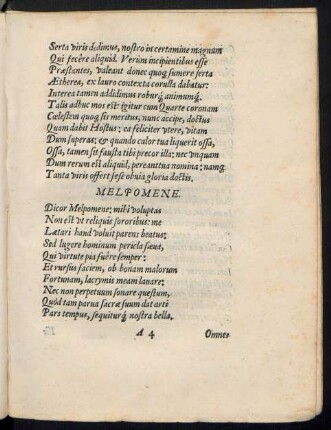 Serta viris dedimus, nostro in certamine magnum
Qui fecêre aliquid. Verùm incipientibus esse
Præstantes, valeant donec quoq sumere serta
Ætherea, ex lauro contexta corulla dabatur:
Interea tamen addidimus roburq́ animumq́.
Talis adhuc mos est: igitur cum Quarte coronam
Cælestem quoq sis meritus, nunc accipe, doctus
Quam dabit Hostus: ea feliciter vtere, vitam
Dum superas; & quando calor tua liquerit ossa,
Ossa, tamen sit fausta tibi precor illa: nec vnquam
Dum rerum est aliquid, pereant tua nomina: namq́
Tanta viris offert sese obuia gloria doctis.
MELPOMENE.
Dicor Melpomene; mihi voluptas
Non est vt reliquis sororibus: me
Lætari haud voluit parens beatus:
Sed lugere hominum pericla sæua,
Qui virtute pia fuêre semper:
Et rursus faciem, ob bonam malorum
Fortunam, lacrymis meam lauare:
Nec non perpetuum sonare quæstum,
Quòd tam parua sacræ suum dat arti
Pars tempus, sequiturq́ nostra bella.
A 4 Omnes